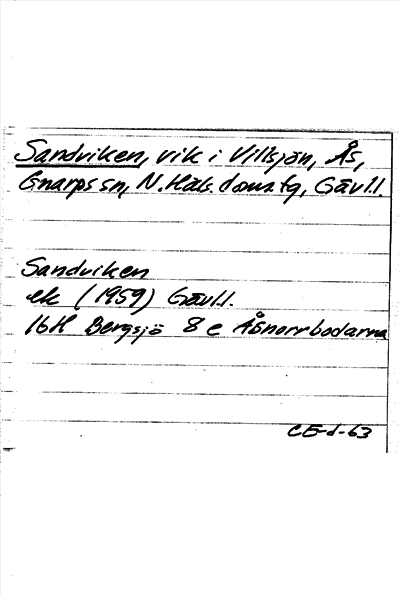 Sandviken, vik i Villsjön, Ås,
Gnarps sn, N. Häls. doms.fg, Gävl.l.
Sandviken
ek (1959) Gävl.l.
16H Bergsjö 8 e Åsnorrbodarna
CE-d-63